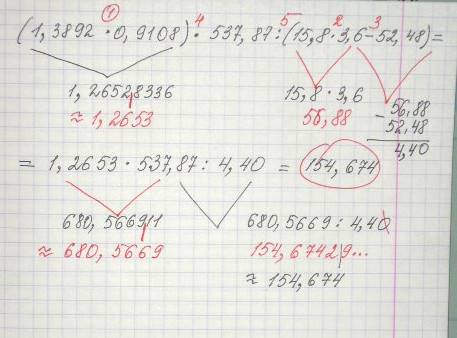 1 4 5 2 3
(1,3892 · 0,9108) · 537,87 : (15,8 · 3,6 - 52,48) =
1,26528336 15,8 · 3,6 56,88
≈ 1,2653 56,88 - 52,48
4,40
= 1,2653 · 537,87 : 4,40 = 154,674
680,566911 680,5669 : 4,40
≈ 680,5669 154,67429...
≈ 154,674